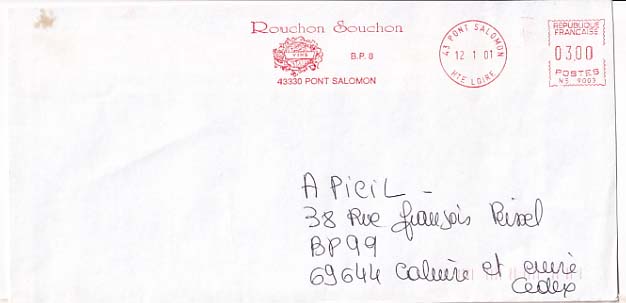 Rouchon Souchon
VINS
B.P. 8
43330 PONT SALOMON
43 PONT SALOMON
12 1 01
HTE LOIRE
REPUBLIQUE
FRANCAISE
03,00
POSTES
APICIL -
38 Rue François Peissel
BP 99
69644 Caluire et cuire
Cedex